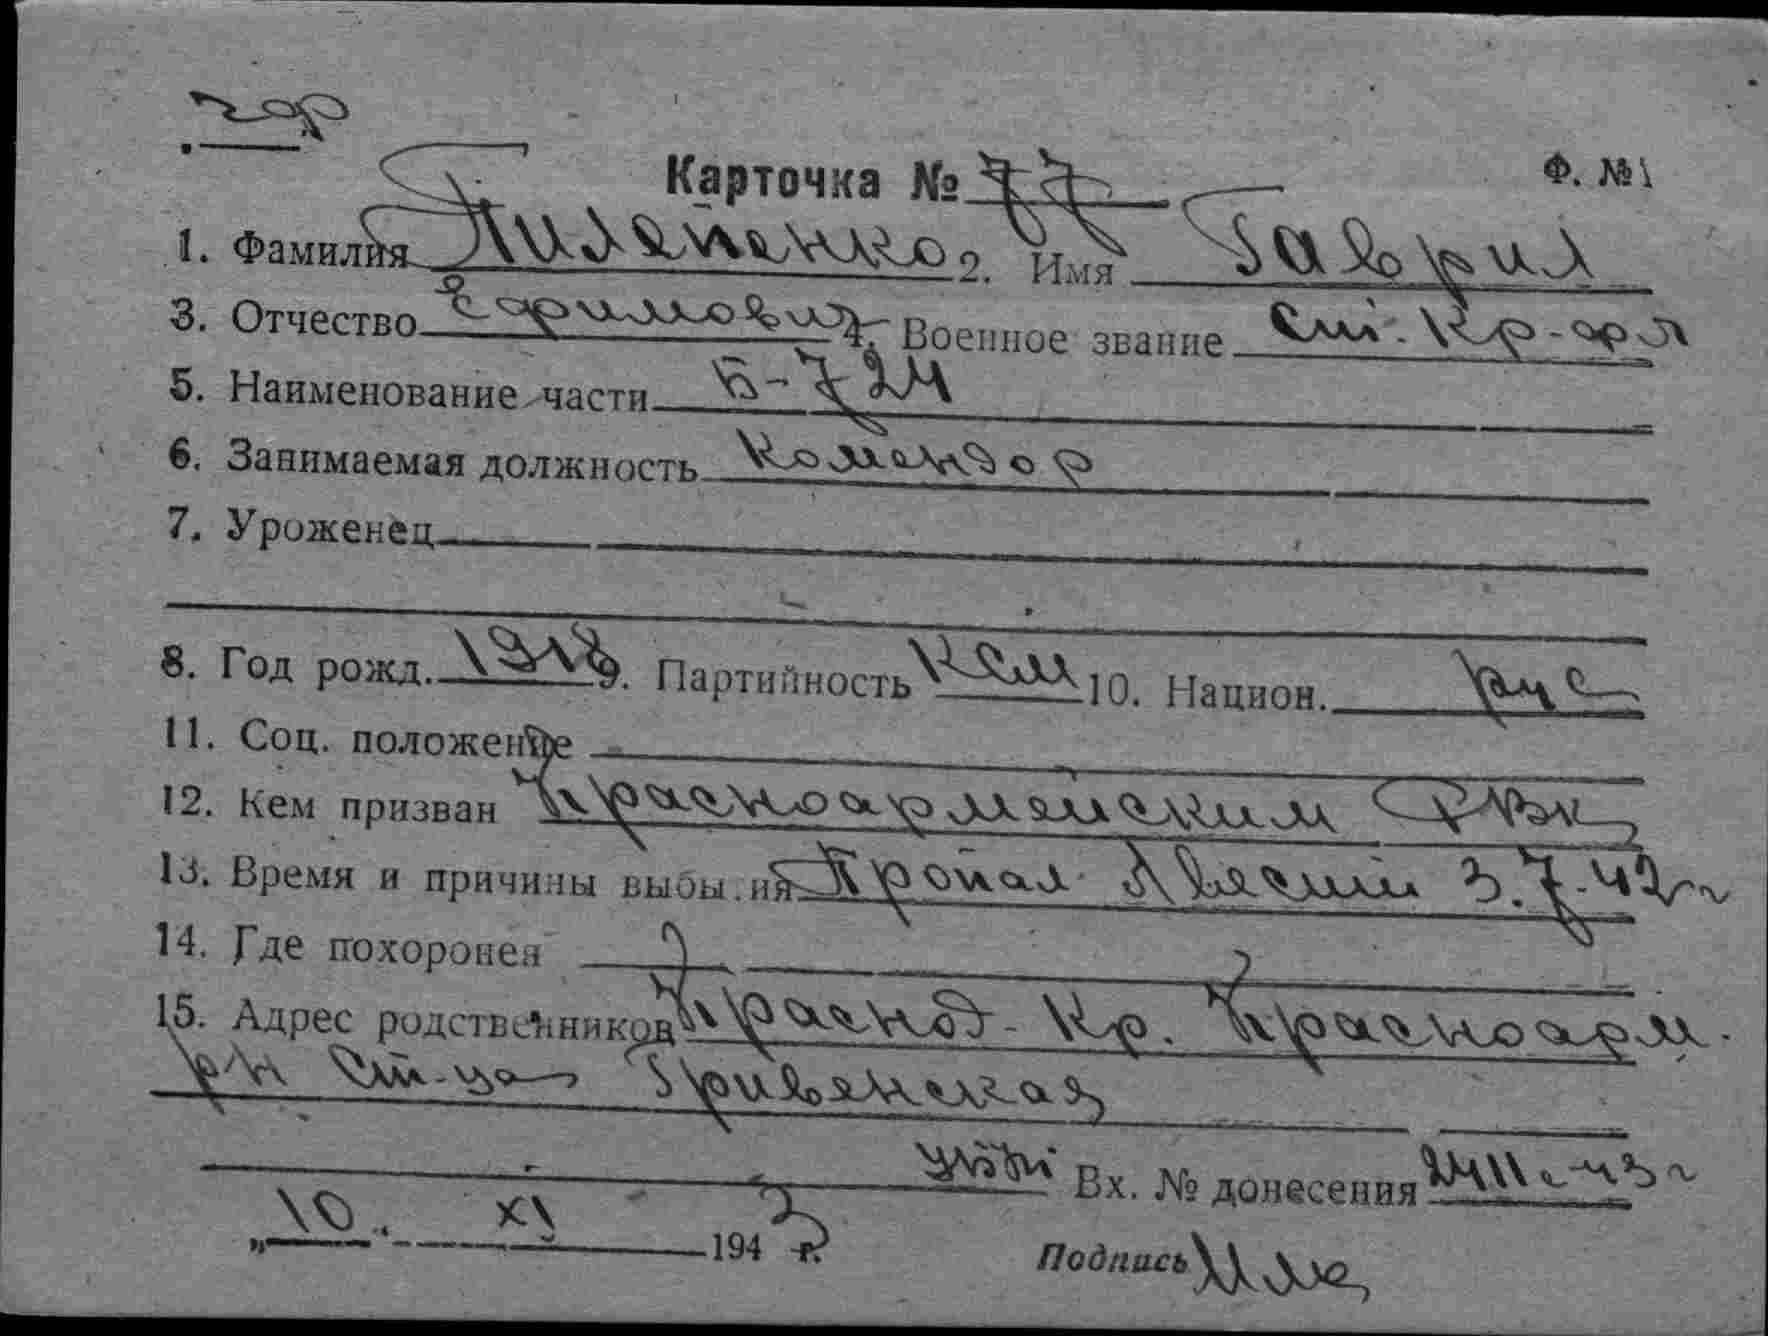 Карточка № 77 Ф. №1
1. Фамилия Пилепенко 2. Имя Гаврил
3. Отчество Ефимович 4. Военное звание Ст. Кр-фл
5. Наименование части Б-724
6. Занимаемая должность Командор
7. Уроженец
8. Год рожд. 1918 9. Партийность 10. Национ. рус
11. Соц. положение
12. Кем призван Красноармейским РВК
13. Время и причины выбытия Пропал без вести 3.7.42 г
14. Где похоронен
15. Адрес родственников Краснод. Кр. Красноарм.
р/н Ст-ца Гривенская
Вх. № донесения
„10“ XI 1943 г.
Подпись